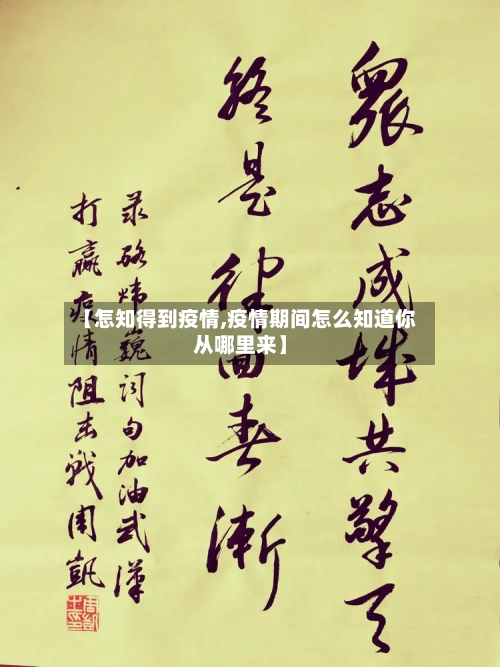 众志成城共擎天
终是律回春渐
录硌炜巍词句加油武汉
打赢疫情阻击战周凯
【怎知得到疫情,疫情期间怎么知道你
从哪里来】